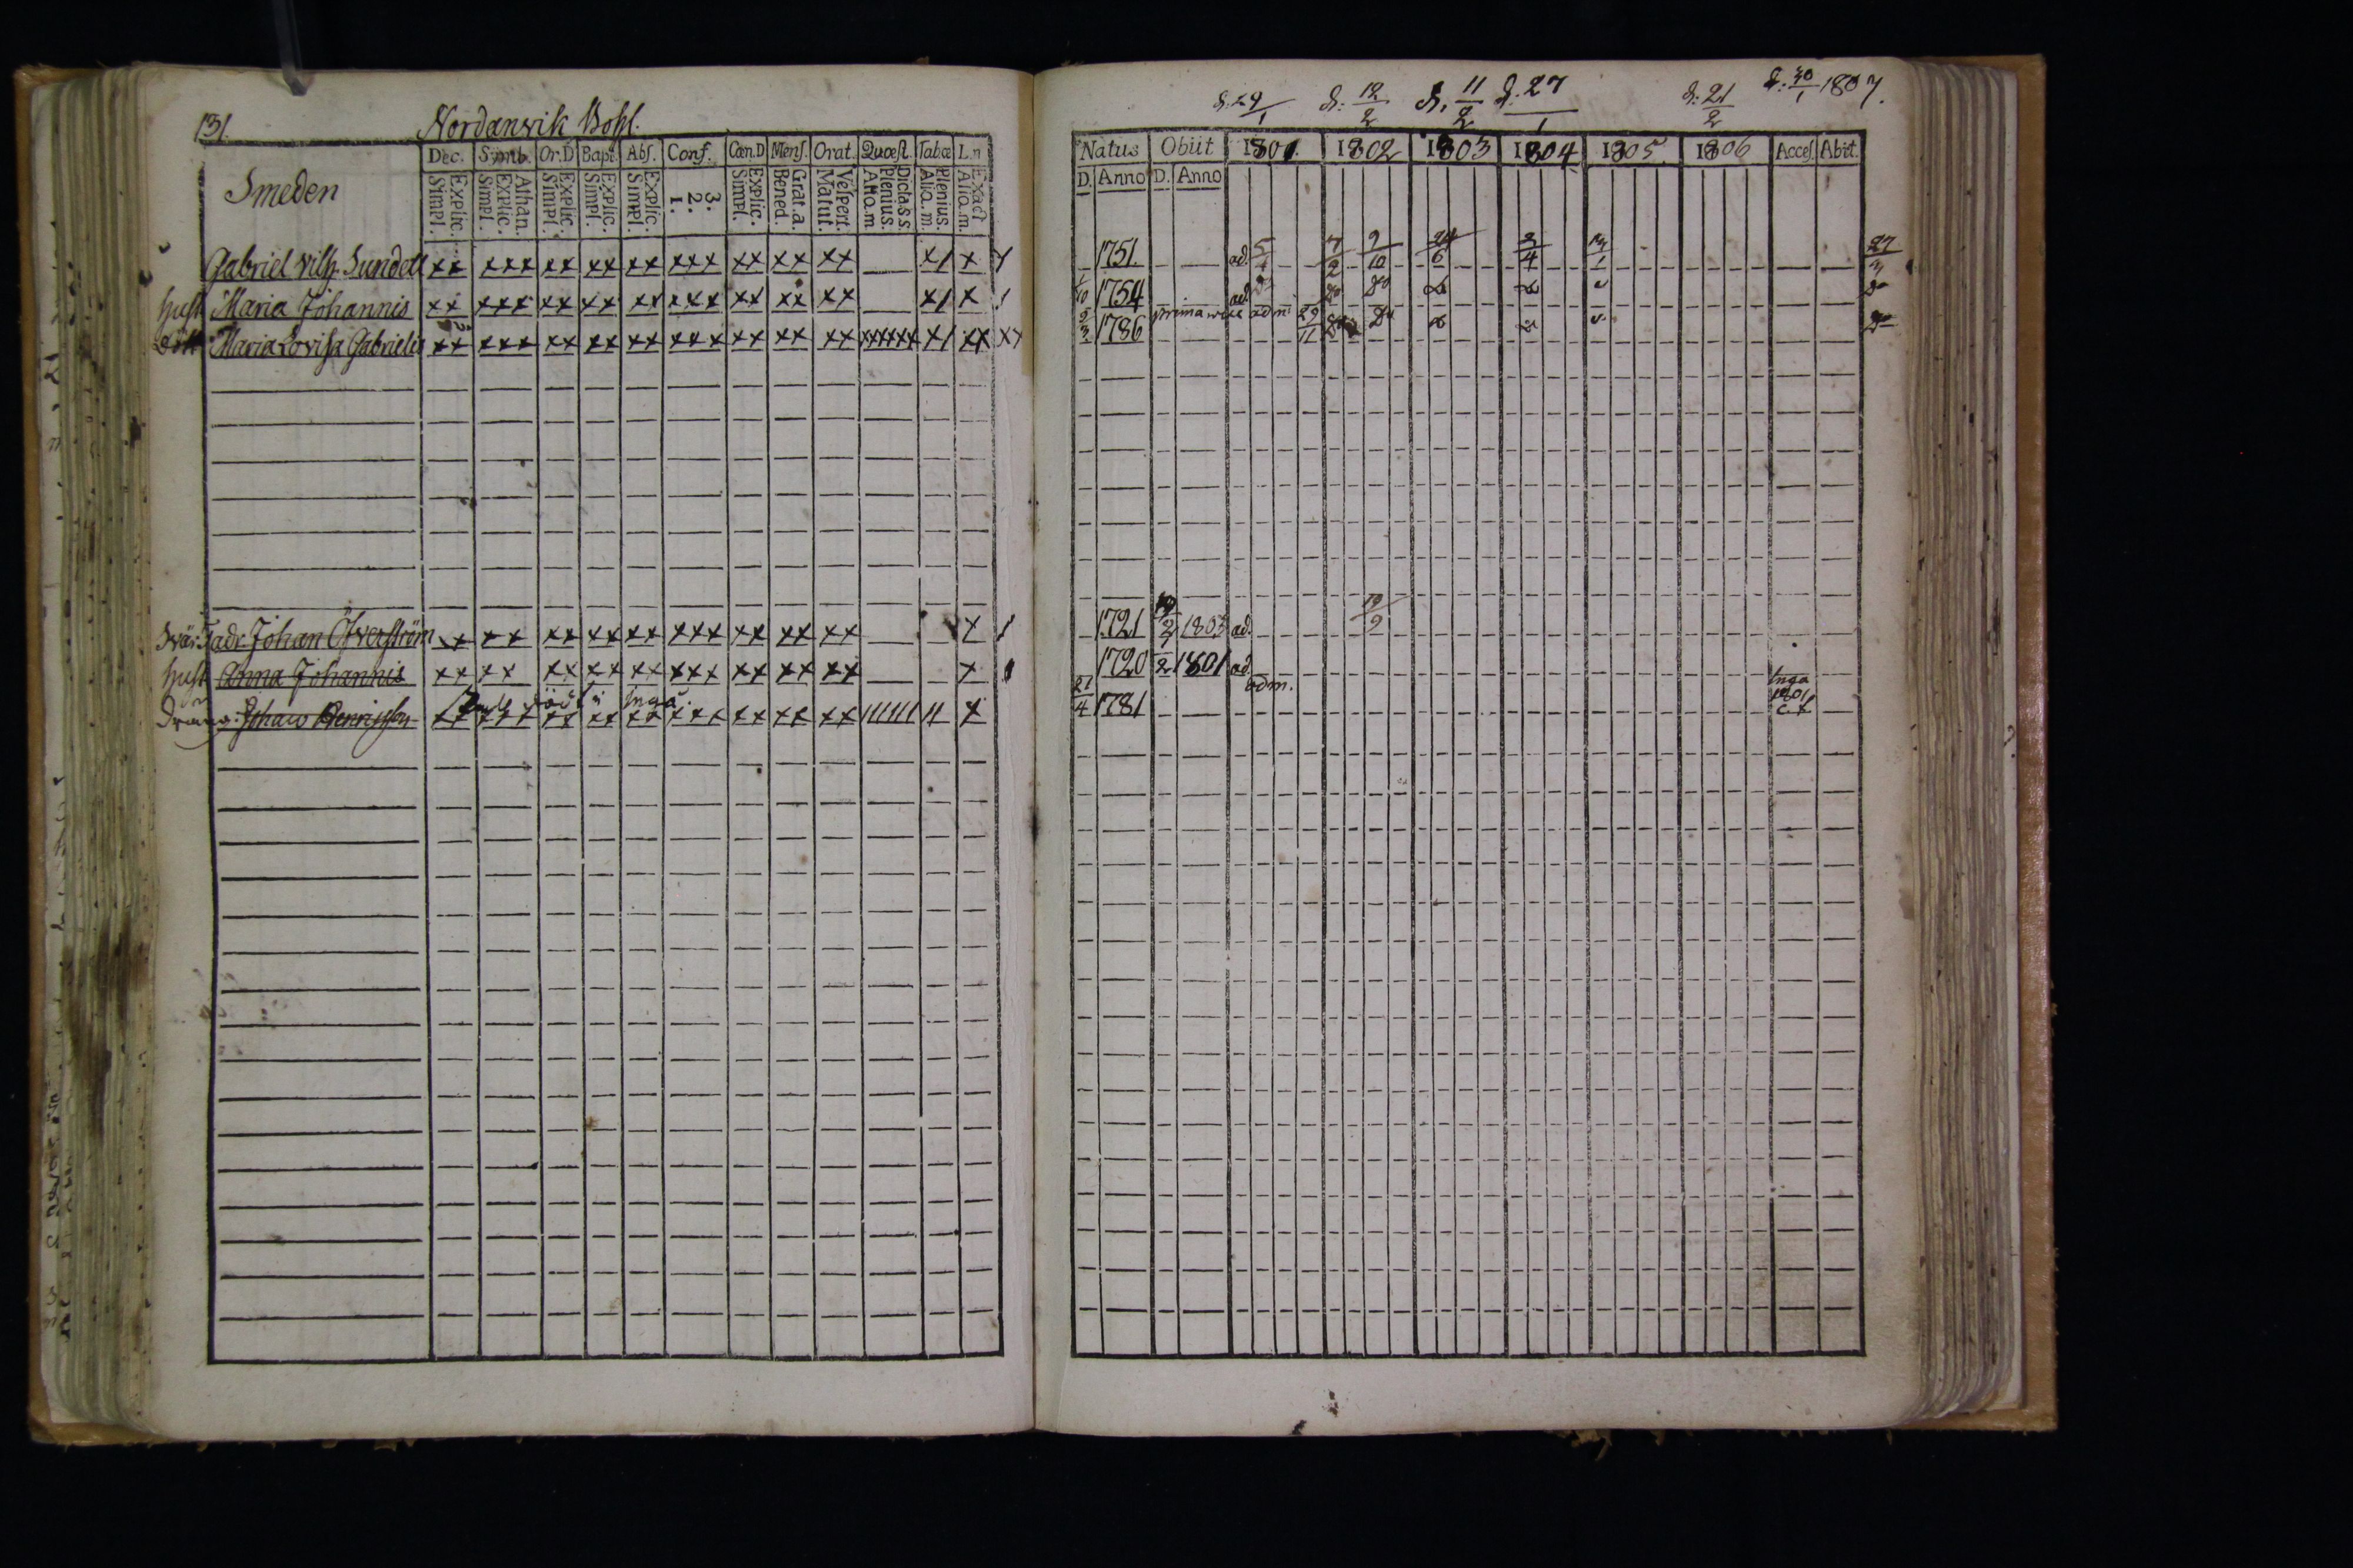 131. Nordanvik Bohl.
Smeden
Dec. Symb. Or.D Bapt. Abſ. Conf. Cœn.D Menſ. Orat. Quæſt. Tabœ L.n
Explic. Simpl. Athan. Explic. Simpl. Explic. Simpl. Explic. Simpl. Explic. Simpl. 3. 2. 1. Explic. Simpl. Grat.a. Bened. Veſpert. Matut. Dicta.S.S. Plenius. Aliq.m Plenius. Aliq.m Exact Aliq.m
Gabriel Vilh. Sundell xx xxx xx xx xx xxx xx xx xx x/ x
hust Maria Johannis xx xxx xx xx xx xxx xx xx xx x/ x /
Maria Lovisa Gabrielis xx xxx xx xx xx xxx xx xx xx xxxxxx x/ xx xx
Johan Öfverström xx xx xx xx xx xxx xx xx xx x /
hust Anna Johannis xx xx xx xx xx xxx xx xx xx x
Inga
Dräng. Johan xx xxx xx xx xx xxx xx xx xx ////// // x
d. 29/1 d. 12/2 d. 11/2 d. 27/1 d. 21/2 d. 30/1 1807.
Natus Obiit 1801. 1802 1803 1804 1805. 1806 Acceſ. Abiit.
D. Anno D. Anno
1751. ad. 9/10 24/6 3/4 27/3
1754 ad
1786 prima vice adm 29/11
1721 1803 ad. 19/9
1720 2 1801 ad
21/4 1781 adm. Inga 1801